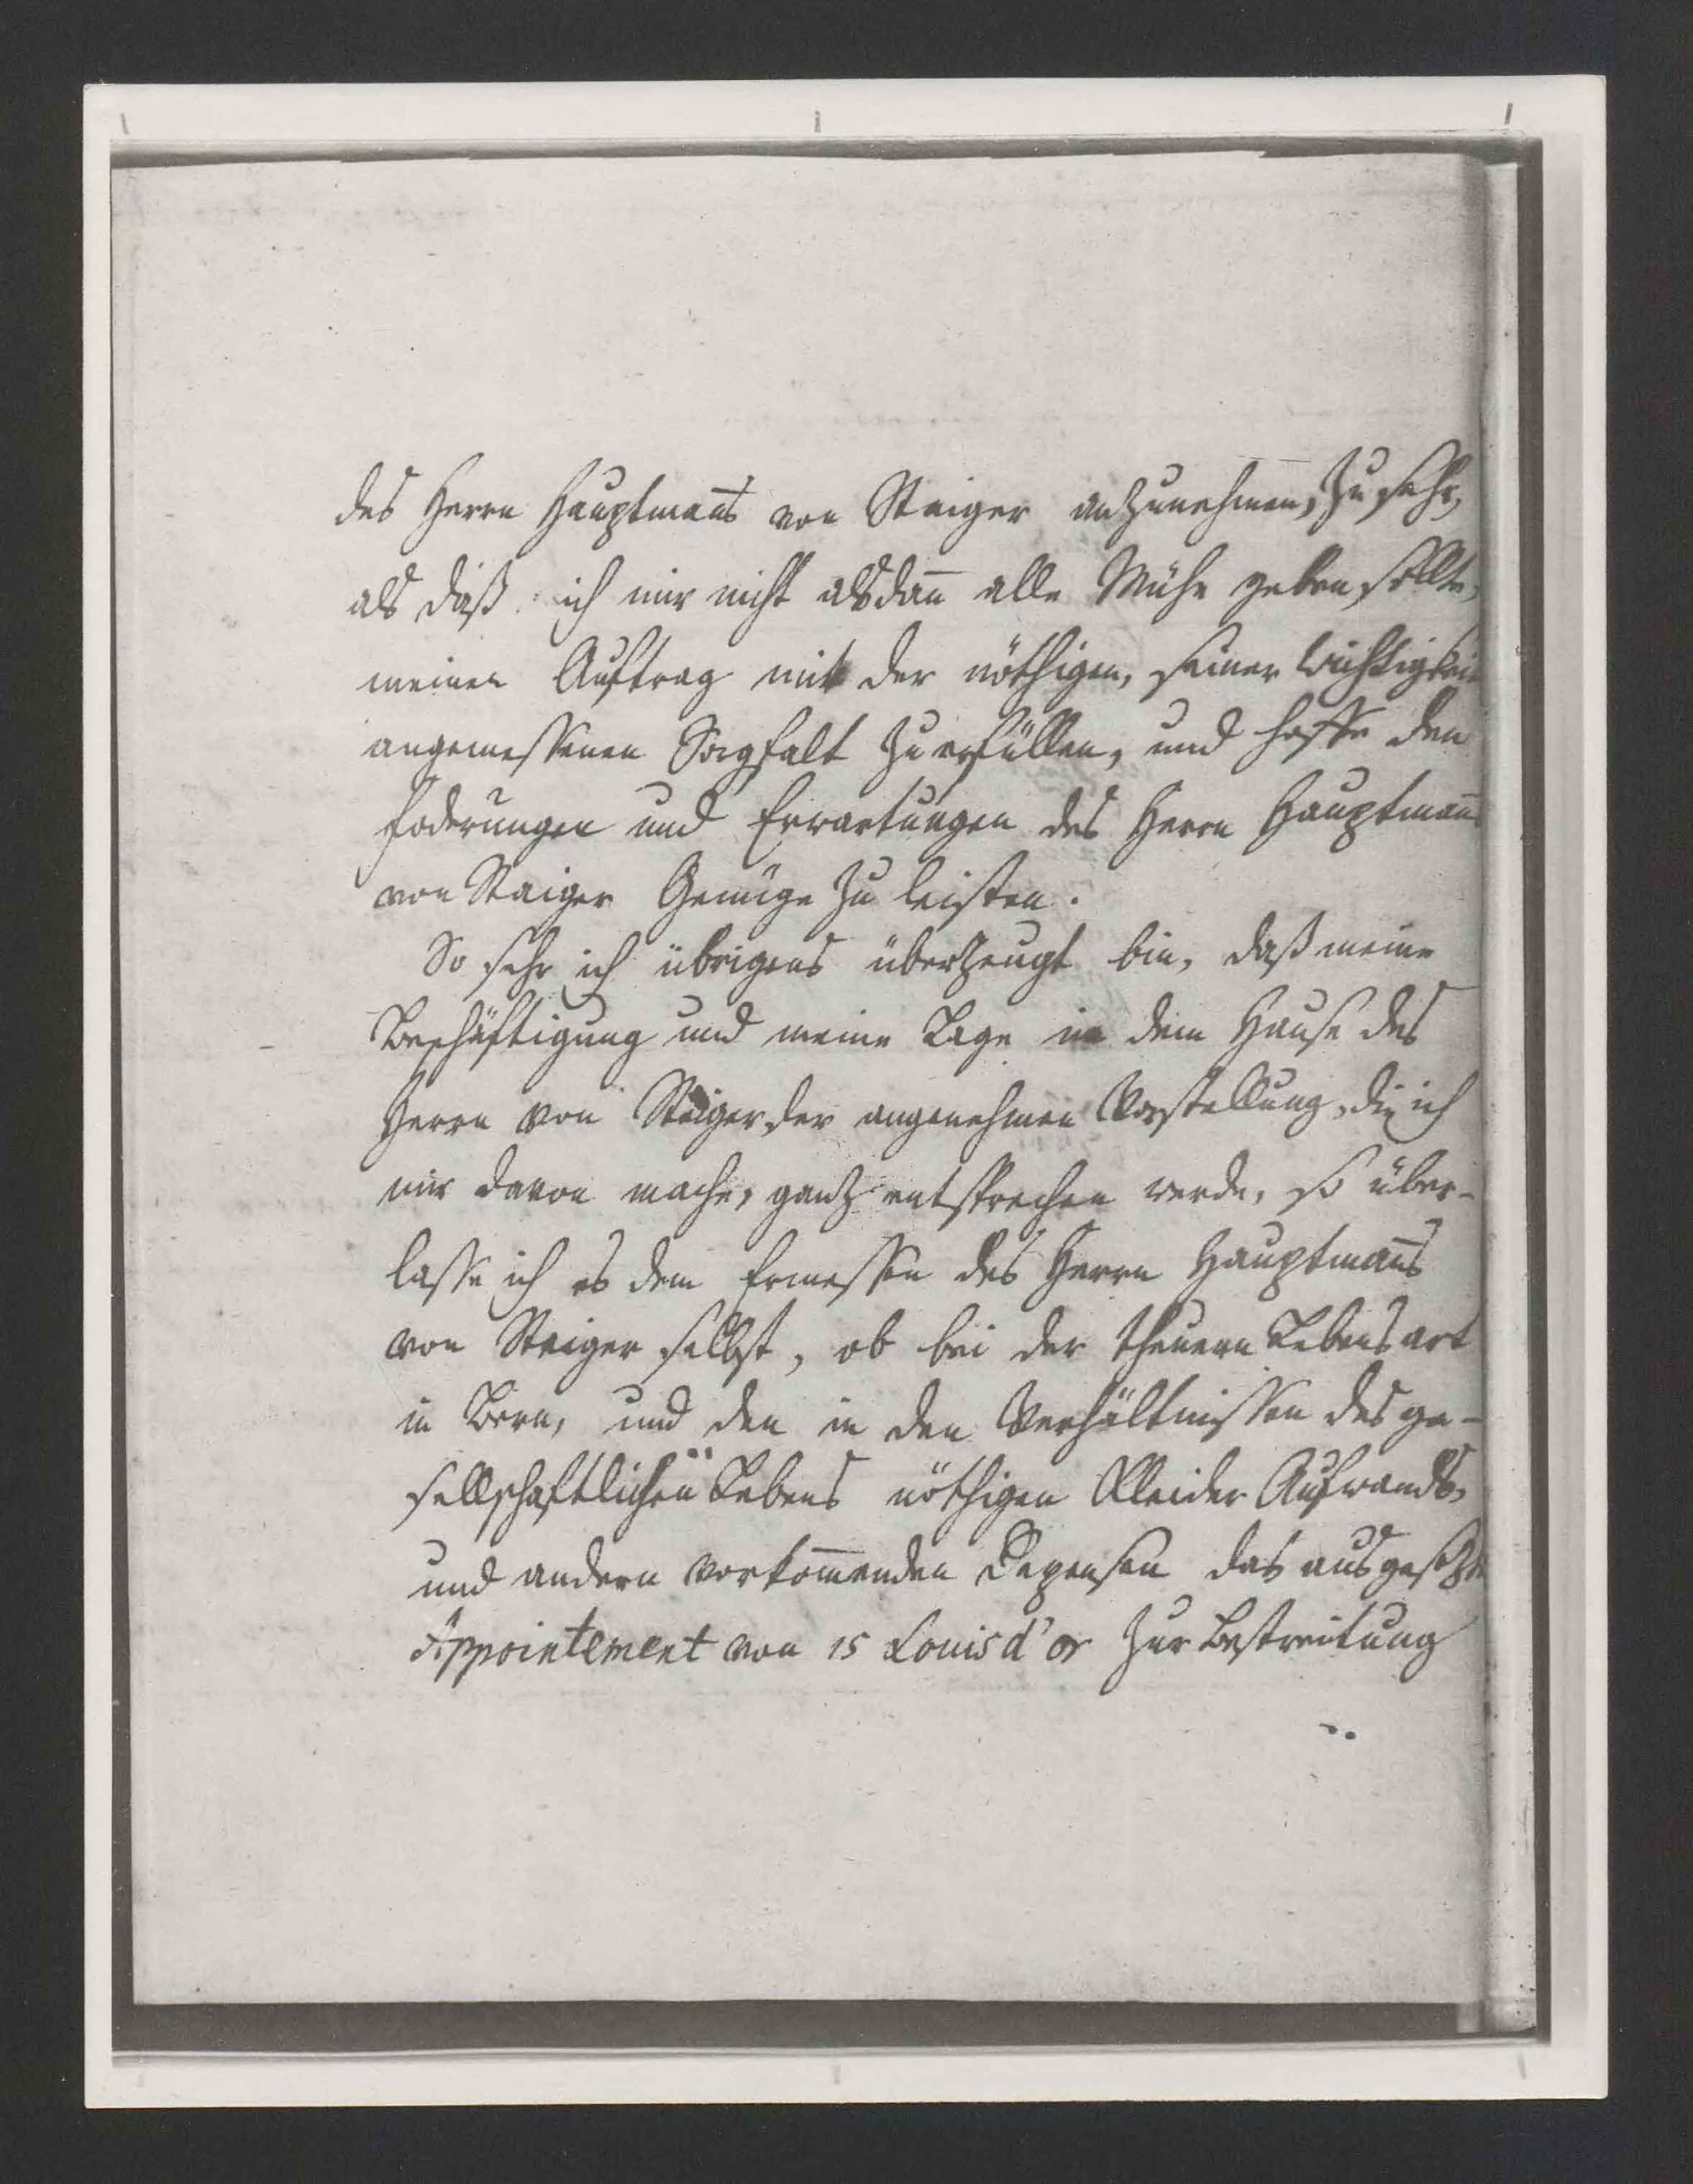 des Herrn Hauptman̄s von Steiger anzunehmen, zu sehr,
als daß ich mir nicht alsdan̄ alle Mühe geben sollte,
meinen Auftrag mit der nöthigen, seiner Wichtigkeit
angemessenen Sorgfalt zu erfüllen, und hoffe den
Foderungen und Erwartungen des Herrn Hauptman̄s
von Steiger Genüge zu leisten.
So sehr ich übrigens überzeugt bin, daß meine
Beschäftigung und meine Lage in dem Hause des
Herrn von Steiger, der angenehmen Vorstellung, die ich
mir davon mache, ganz entsprechen werde, so über-
lasse ich es dem Ermessen des Herrn Hauptman̄s
von Steiger selbst, ob bei der theuern Lebensart
in Bern, und den in den Verhältnissen des ge-
sellschaftlichen Lebens nöthigen Kleider Aufwands,
und andern vorkom̄enden Depensen das ausgesezte
Appointement von 15 Louis d'or zur Bestreitung